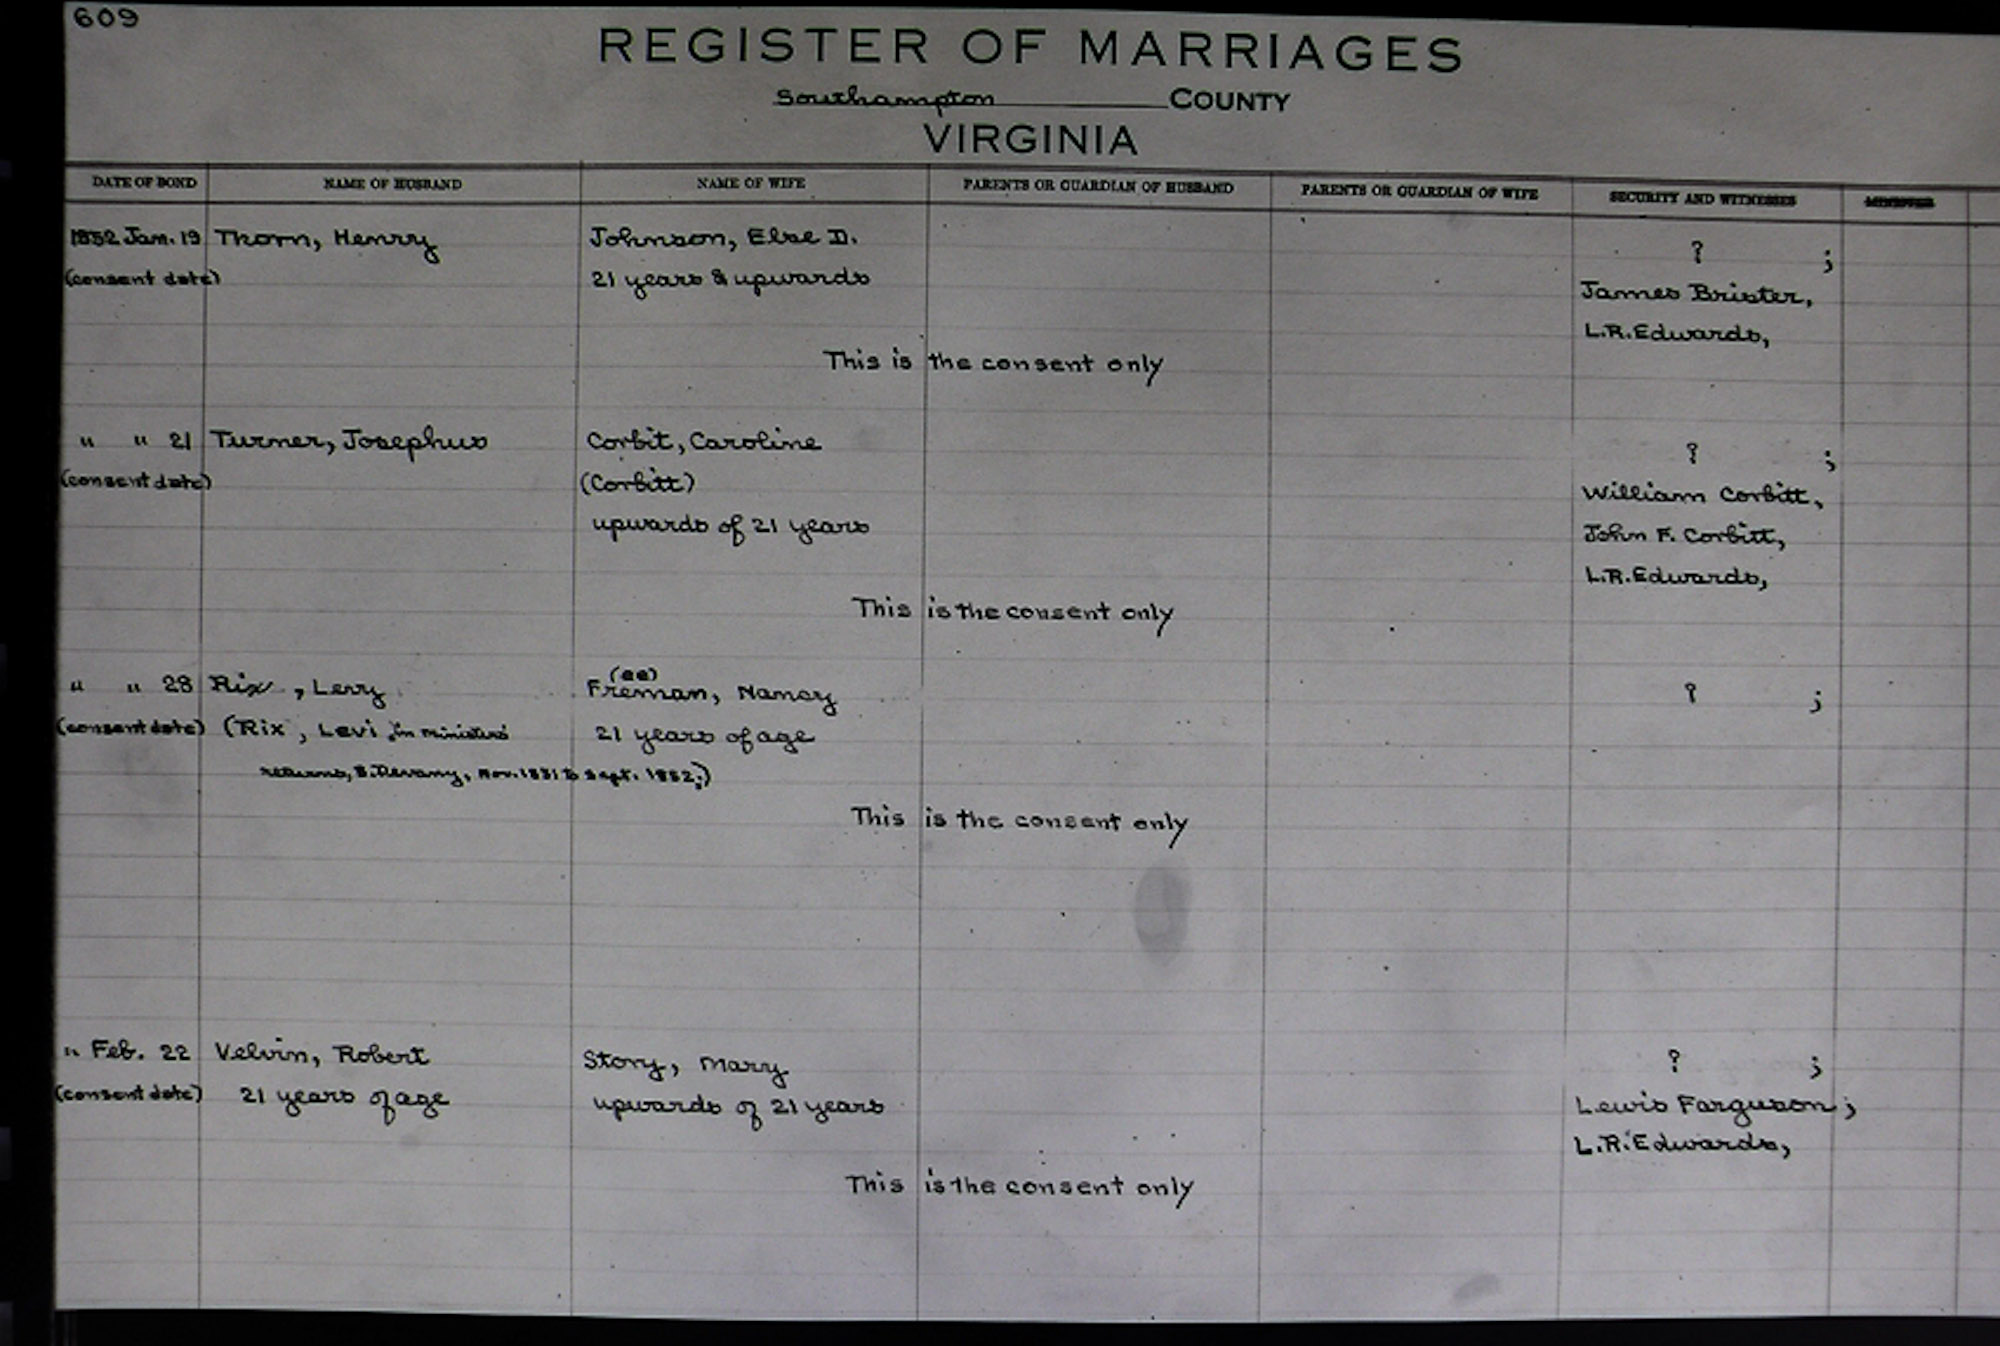 609
REGISTER OF MARRIAGES
Southampton COUNTY
VIRGINIA
DATE OF BOND NAME OF HUSBAND NAME OF WIFE PARENTS OR GUARDIAN OF HUSBAND PARENTS OR GUARDIAN OF WIFE SECURITY AND WITNESSES MINISTER
1852 Jan. 19 Thorn, Henry Johnson, Else D. ? ;
(consent date) 21 years & upwards James Brister,
L.R. Edwards,
This is the consent only
" " 21 Turner, Josephus Corbit, Caroline ? ;
(consent date) (Corbitt) William Corbitt,
upwards of 21 years John F. Corbitt,
L.R. Edwards,
This is the consent only
(ee)
" " 28 Rix, Levy Freman, Nancy ? ;
(consent date) (Rix, Levi, in ministers' 21 years of age
returns, B. Devany, Nov. 1851 to Sept. 1852;)
This is the consent only
" Feb. 22 Velvin, Robert Story, Mary ? ;
(consent date) 21 years of age upwards of 21 years Lewis Farguson;
L.R. Edwards,
This is the consent only